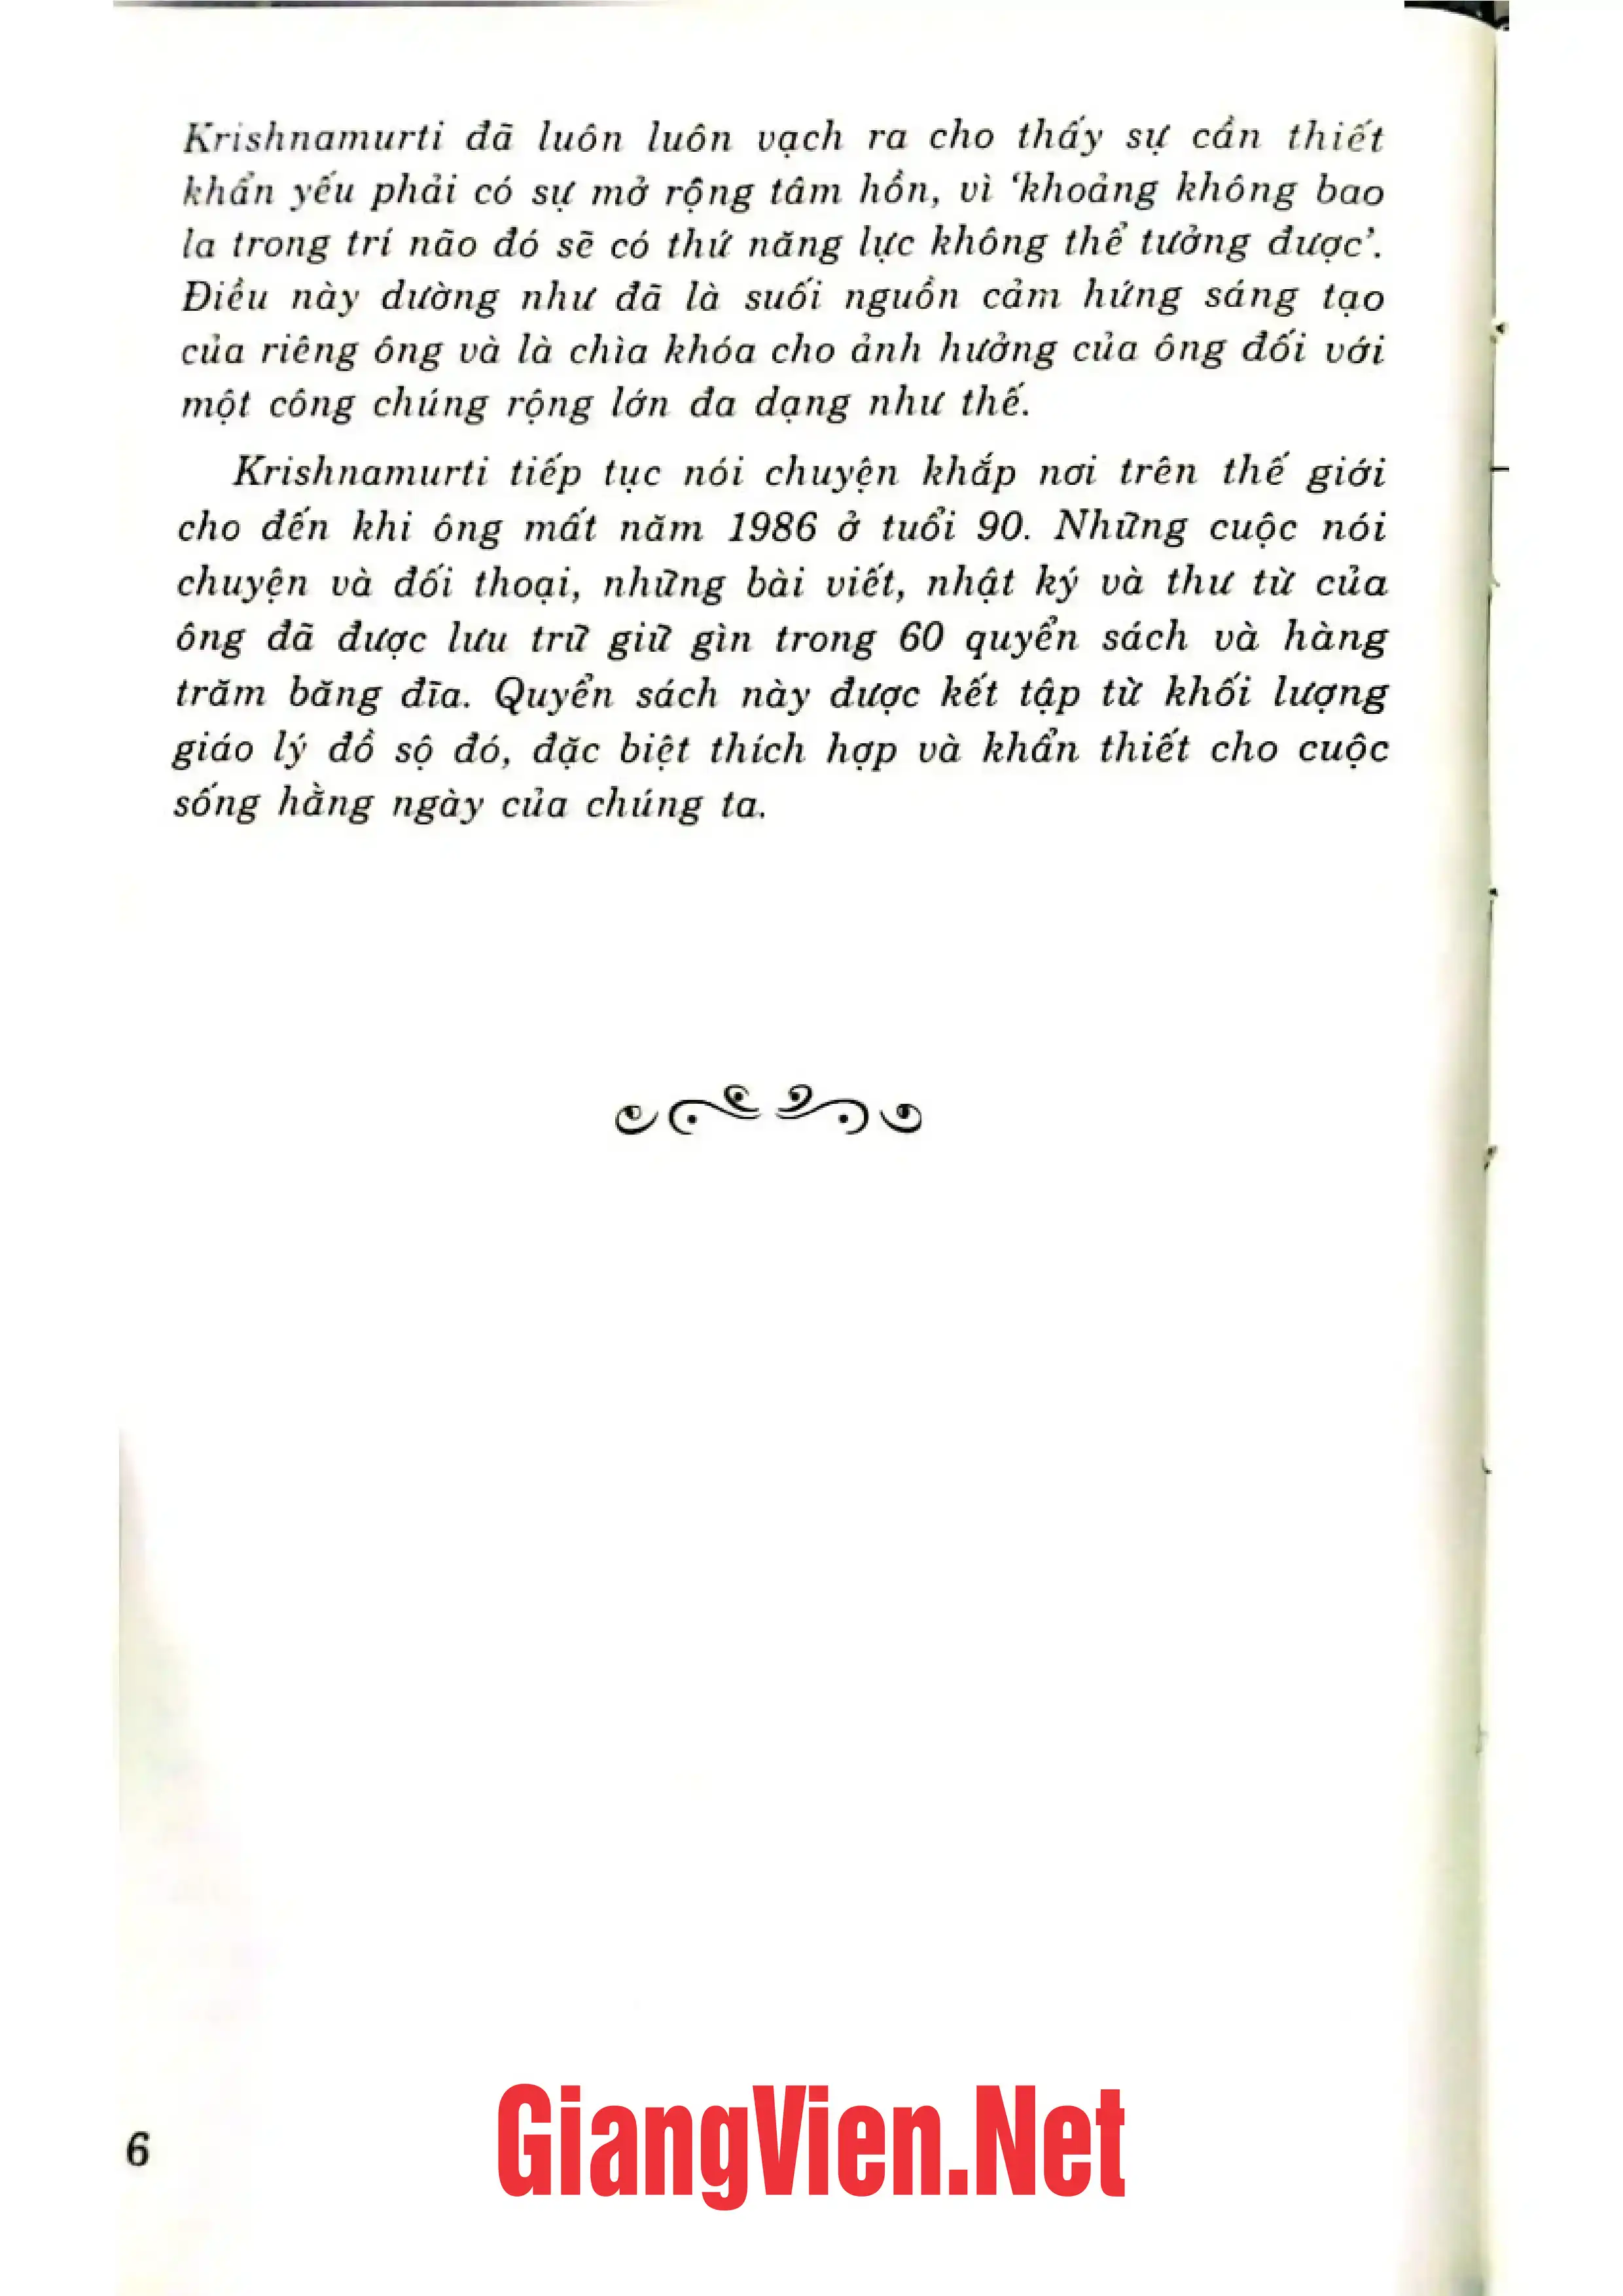 Krishnamurti đã luôn luôn vạch ra cho thấy sự cần thiết
khẩn yếu phải có sự mở rộng tâm hồn, vì ‘khoảng không bao
la trong trí não đó sẽ có thứ năng lực không thể tưởng được’.
Điều này dường như đã là suối nguồn cảm hứng sáng tạo
của riêng ông và là chìa khóa cho ảnh hưởng của ông đối với
một công chúng rộng lớn đa dạng như thế.
Krishnamurti tiếp tục nói chuyện khắp nơi trên thế giới
cho đến khi ông mất năm 1986 ở tuổi 90. Những cuộc nói
chuyện và đối thoại, những bài viết, nhật ký và thư từ của
ông đã được lưu trữ giữ gìn trong 60 quyển sách và hàng
trăm băng đĩa. Quyển sách này được kết tập từ khối lượng
giáo lý đồ sộ đó, đặc biệt thích hợp và khẩn thiết cho cuộc
sống hằng ngày của chúng ta.
6
GiangVien.Net